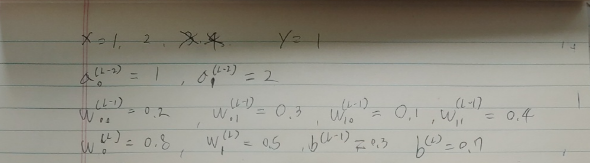 X = 1, 2, Y = 1
a₀⁽ᴸ⁻²⁾ = 1 , a₁⁽ᴸ⁻²⁾ = 2
w₀₀⁽ᴸ⁻¹⁾ = 0.2 , w₀₁⁽ᴸ⁻¹⁾ = 0.3 , w₁₀⁽ᴸ⁻¹⁾ = 0.1 , w₁₁⁽ᴸ⁻¹⁾ = 0.4
w₀⁽ᴸ⁾ = 0.8 , w₁⁽ᴸ⁾ = 0.5 , b⁽ᴸ⁻¹⁾ = 0.3 b⁽ᴸ⁾ = 0.7